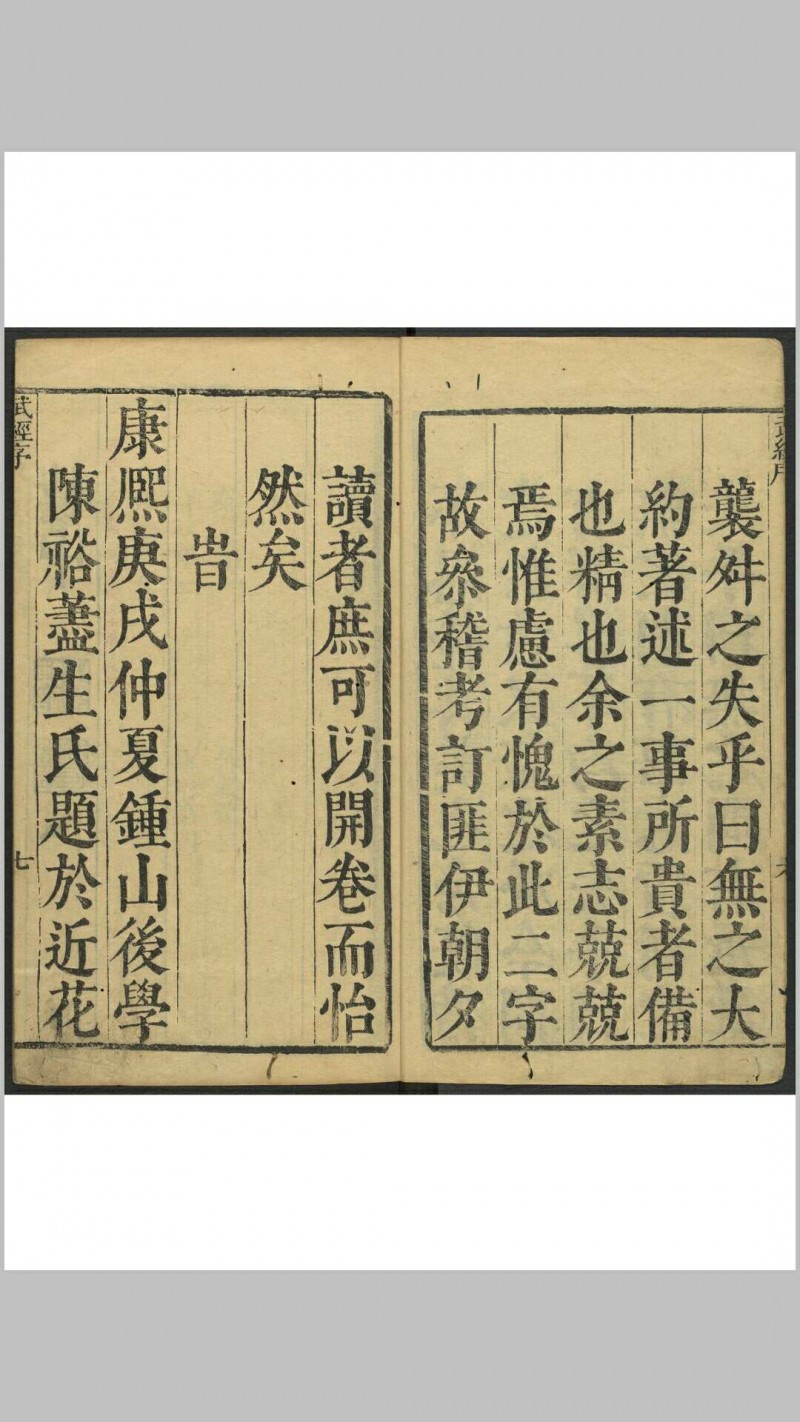 襲舛之失乎曰無之大
約著述一事所貴者備
也精也余之素志兢兢
焉惟慮有愧於此二字
故叅稽考訂匪伊朝夕
讀者庶可以開卷而怡
然矣
旹
康熙庚戌仲夏鍾山後學
陳裕藎生氏題於近花
武經序
七